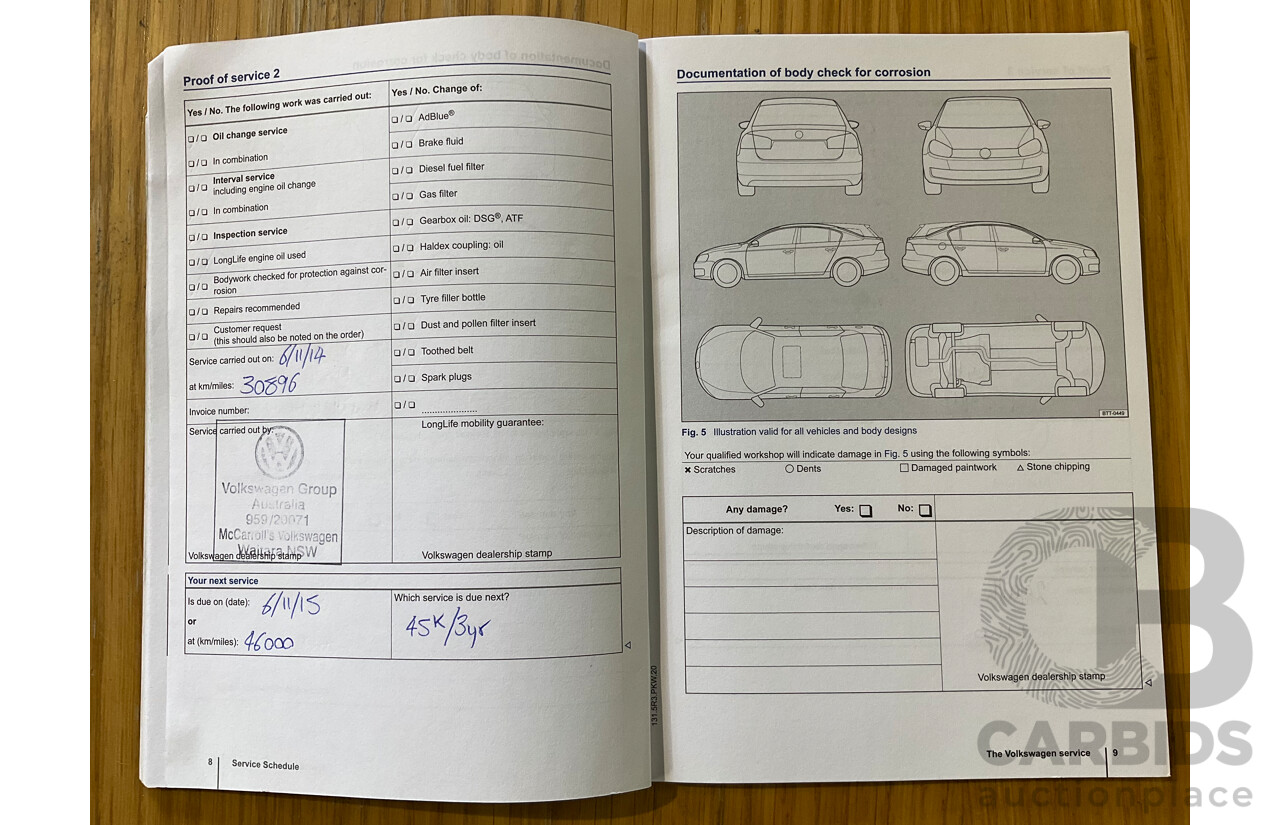 Proof of service 2
Yes / No. The following work was carried out:
❏ / ❏ Oil change service
❏ / ❏ In combination
❏ / ❏ Interval service
including engine oil change
❏ / ❏ In combination
❏ / ❏ Inspection service
❏ / ❏ LongLife engine oil used
❏ / ❏ Bodywork checked for protection against cor-
rosion
❏ / ❏ Repairs recommended
❏ / ❏ Customer request
(this should also be noted on the order)
Service carried out on: 6/11/14
at km/miles: 30896
Invoice number:
Service carried out by:
Volkswagen Group
Australia
959/20071
McCarroll's Volkswagen
Waitara NSW
Volkswagen dealership stamp
Yes / No. Change of:
❏ / ❏ AdBlue®
❏ / ❏ Brake fluid
❏ / ❏ Diesel fuel filter
❏ / ❏ Gas filter
❏ / ❏ Gearbox oil: DSG®, ATF
❏ / ❏ Haldex coupling: oil
❏ / ❏ Air filter insert
❏ / ❏ Tyre filler bottle
❏ / ❏ Dust and pollen filter insert
❏ / ❏ Toothed belt
❏ / ❏ Spark plugs
❏ / ❏ .....................
LongLife mobility guarantee:
Volkswagen dealership stamp
Your next service
Is due on (date): 6/11/15
or
at (km/miles): 46000
Which service is due next?
45K/3yr
8 Service Schedule
131.5R3.PKW.20
Documentation of body check for corrosion
BTT-0449
Fig. 5 Illustration valid for all vehicles and body designs
Your qualified workshop will indicate damage in Fig. 5 using the following symbols:
✖ Scratches ○ Dents □ Damaged paintwork △ Stone chipping
Any damage? Yes: ❏ No: ❏
Description of damage:
Volkswagen dealership stamp
The Volkswagen service 9
CB
CARBIDS
auctionplace